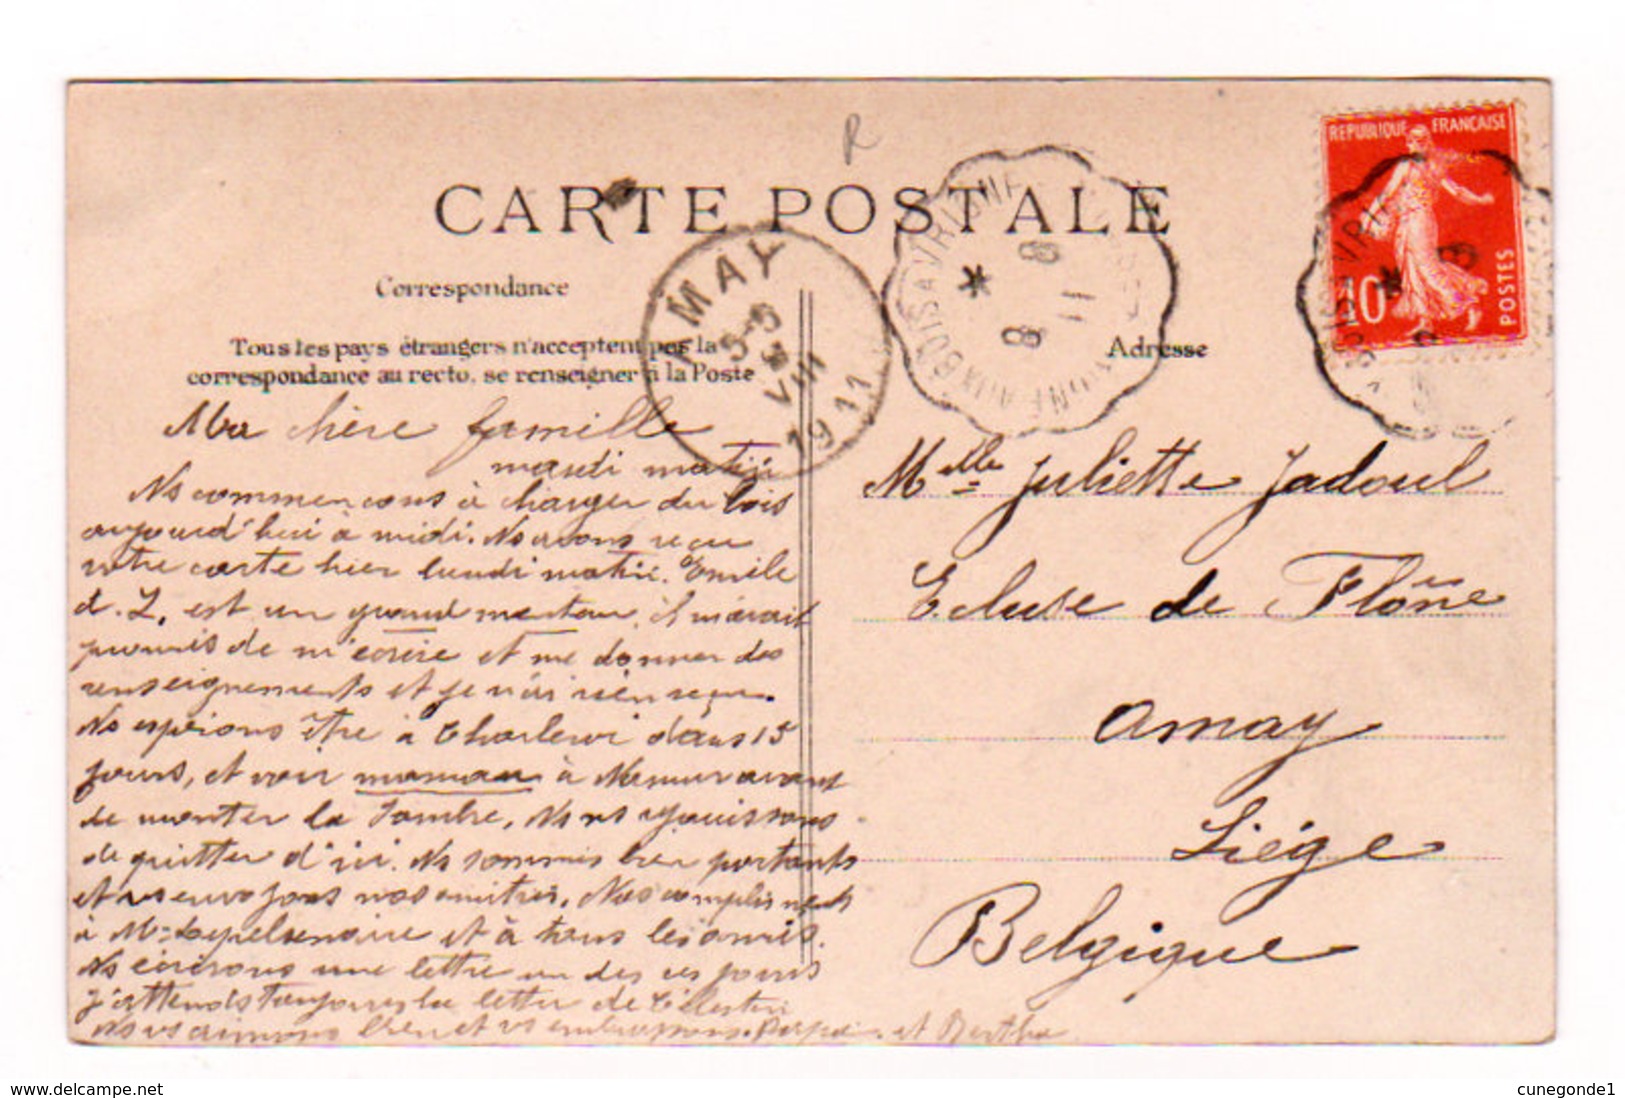 R
CARTE POSTALE
Correspondance
Tous les pays étrangers n'acceptent pas la
correspondance au recto, se renseigner à la Poste
Ma chère famille
mardi matin
Ns commencons à charger du bois
aujourd'hui à midi. Ns avons reçu
votre carte hier lundi matin. Emile
d. L. est un grand menteur, il m'avait
promis de m'écrire et me donner des
renseignements et je n'ai rien reçu.
Ns espérons être à Charleroi dans 15
jours, et voir maman à Namur avant
de monter la Sambre, Ns ns réjouissons
de quitter d'ici. Ns sommes bien portants
et vs envoyons nos amitiés. Nos compliments
à Mr et à tous les amis.
Ns écrirons une lettre un des ces jours
J'attends toujours la lettre de Célestin
Ns vs aimons bien et vs embrassons. et Bertha
AMAY
5-6
3
VIII
1911
BOIS A VRIGNE
AUX BOIS
*
8
8
11
Adresse
REPUBLIQUE FRANCAISE
10
POSTES
Melle Juliette Jadoul
Ecluse de Flône
Amay
Liége
Belgique
cunegonde1